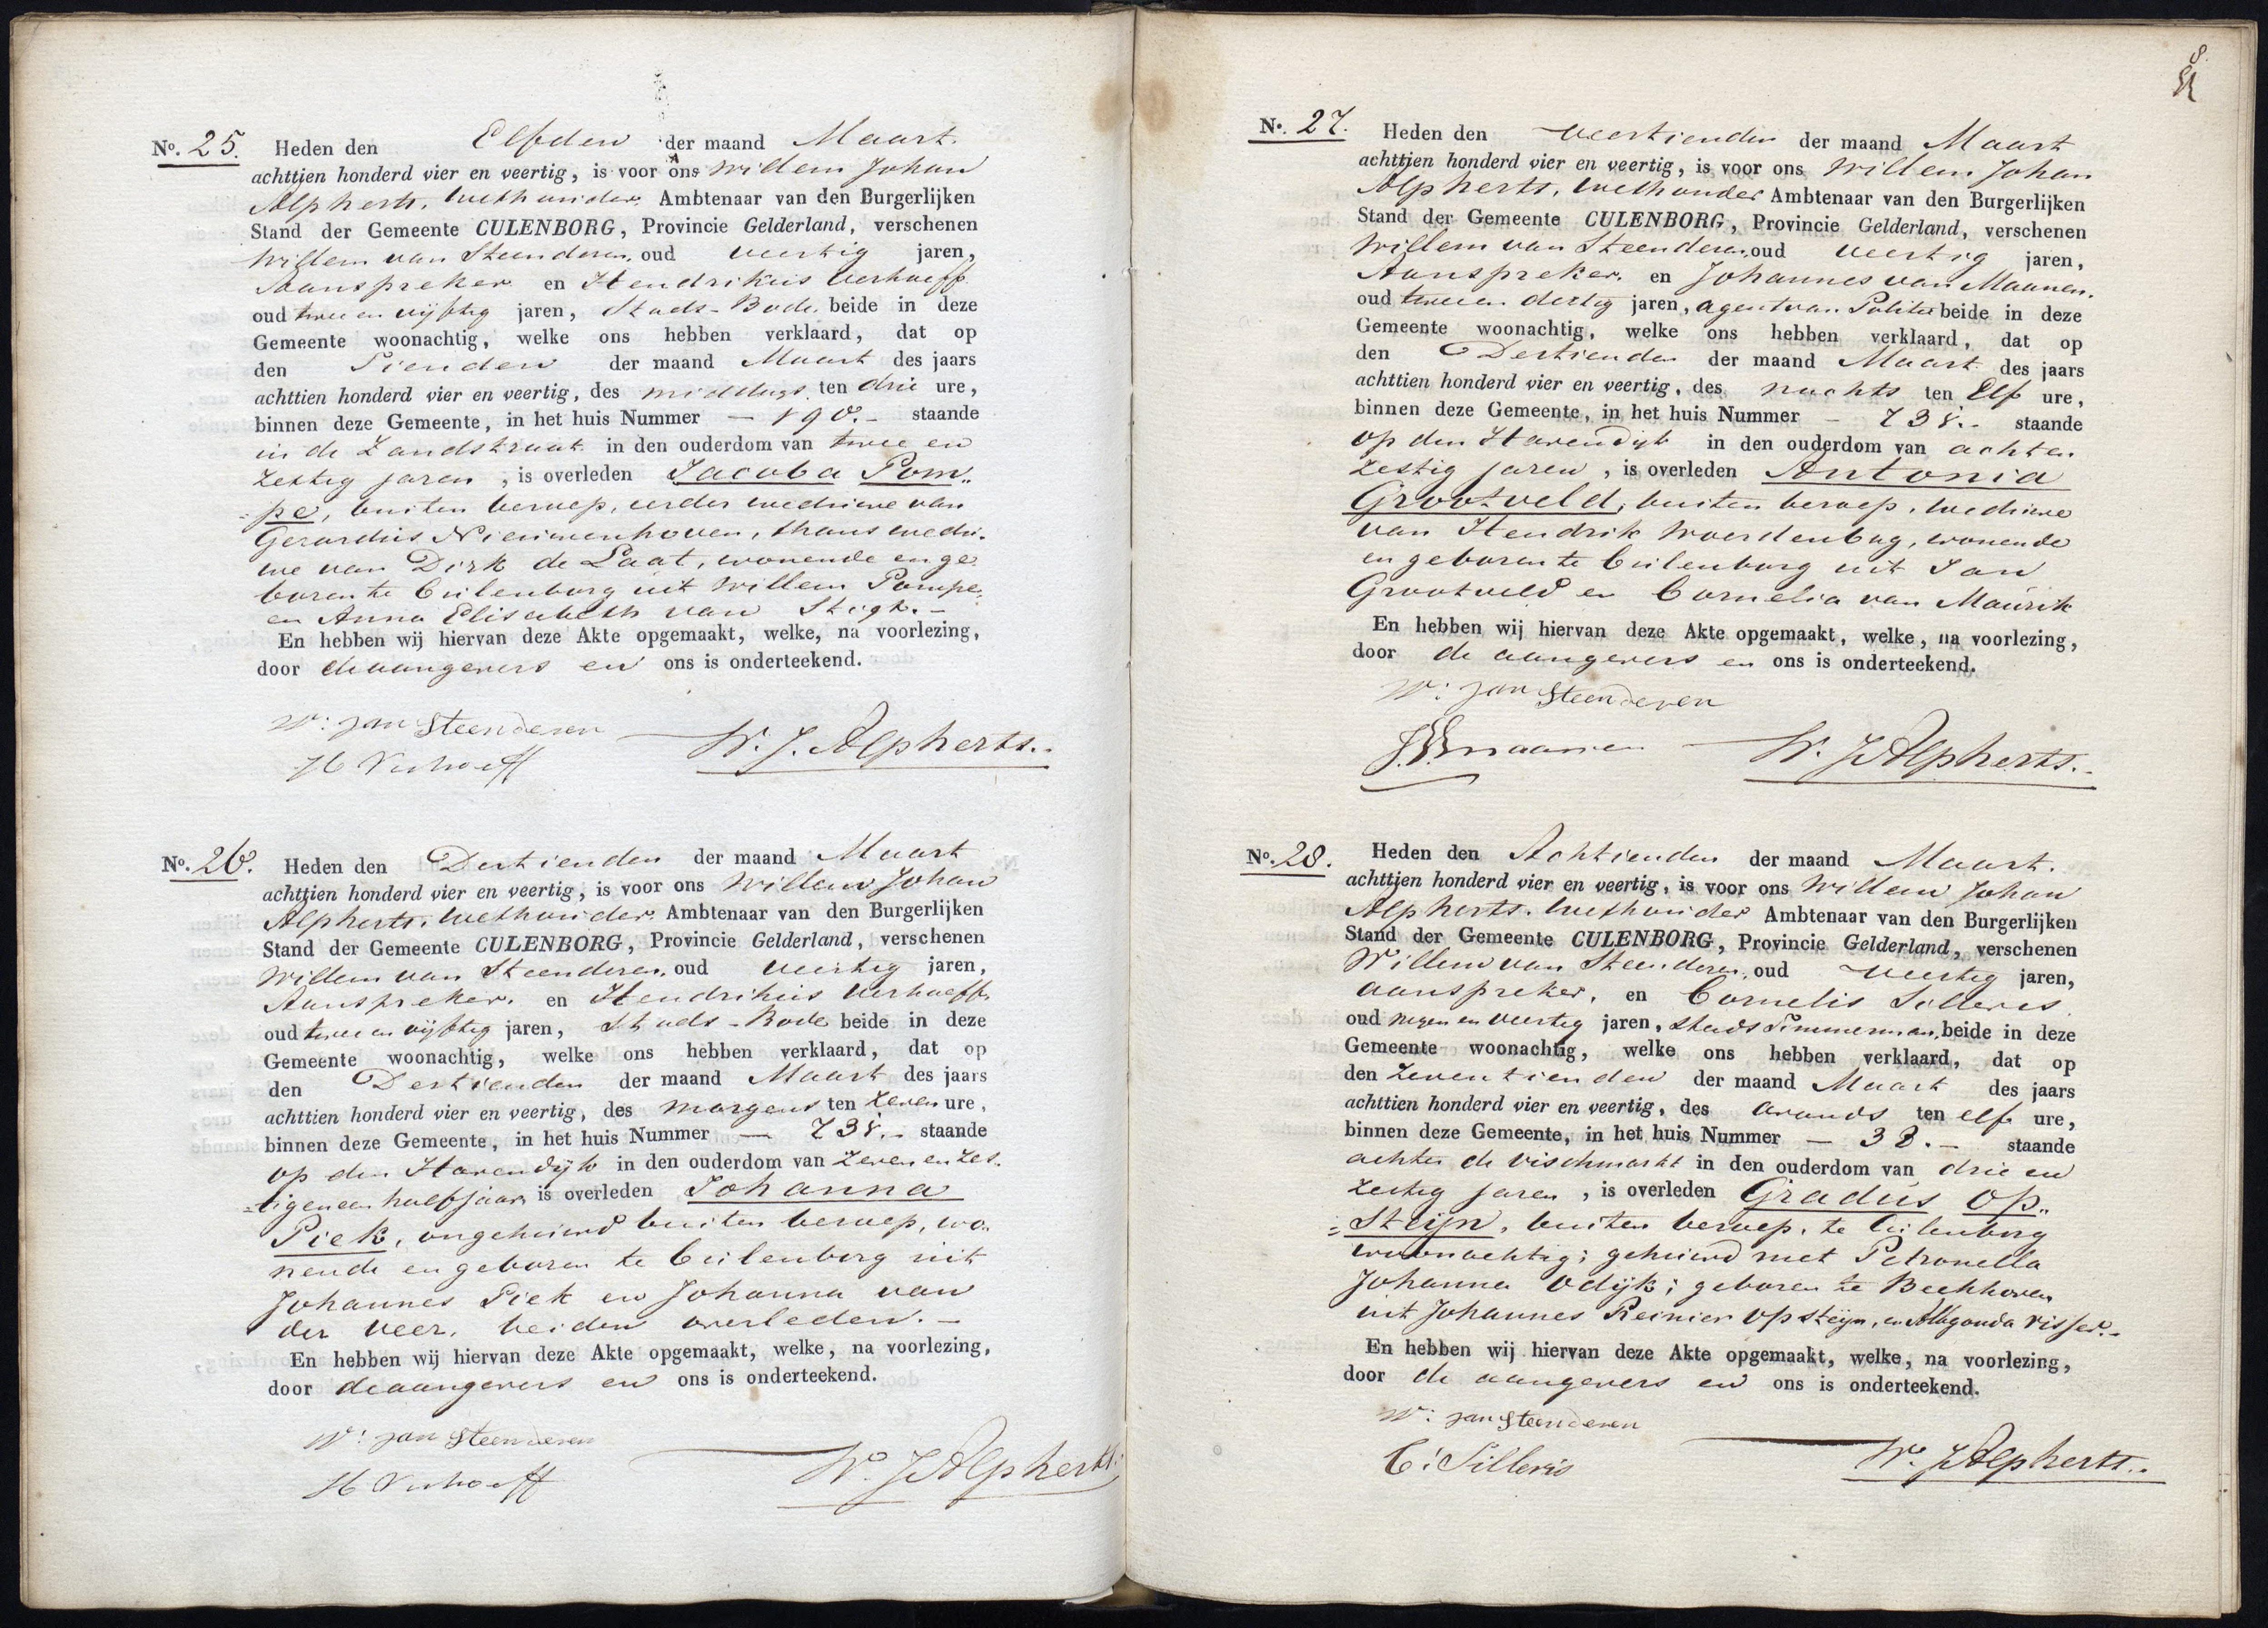 No. 25. Heden den Elfden der maand Maart
achttien honderd vier en veertig, is voor ons Willem Johan
Alpherts, Wethouder, Ambtenaar van den Burgerlijken
Stand der Gemeente CULENBORG, Provincie Gelderland, verschenen
Willem van Steenderen, oud veertig jaren,
Aanspreker en Hendrikus Verhoeff
oud twee en vijftig jaren, Stads-Bode, beide in deze
Gemeente woonachtig, welke ons hebben verklaard, dat op
den Tienden der maand Maart des jaars
achttien honderd vier en veertig, des middags ten drie ure,
binnen deze Gemeente, in het huis Nummer — 190.- staande
in de Zandstraat in den ouderdom van twee en
zestig jaren, is overleden Jacoba Pom„
=pe, buiten beroep, eerder weduwe van
Gerardus Nieuwenhoven, thans wedu.
we van Dirk de Laat, wonende en ge
boren te Cuilenborg uit Willem Pompe,
en Anna Elisabeth van Stigt.-
En hebben wij hiervan deze Akte opgemaakt, welke, na voorlezing,
door de aangevers en ons is onderteekend.
W: van Steenderen
H Verhoeff W. J. Alpherts.
No. 26. Heden den Dertienden der maand Maart
achttien honderd vier en veertig, is voor ons Willem Johan
Alpherts, Wethouder, Ambtenaar van den Burgerlijken
Stand der Gemeente CULENBORG, Provincie Gelderland, verschenen
Willem van Steenderen, oud veertig jaren,
Aanspreker, en Hendrikus Verhoeff,
oud twee en vijftig jaren, Stads-Bode beide in deze
Gemeente woonachtig, welke ons hebben verklaard, dat op
den Dertienden der maand Maart des jaars
achttien honderd vier en veertig, des morgens ten zeven ure,
binnen deze Gemeente, in het huis Nummer — 738.- staande
op den Havendijk in den ouderdom van zeven en zes.
=tig en een half jaar is overleden Johanna
Piek, ongehuwd buiten beroep, wo.
nende en geboren te Cuilenborg uit
Johannes Piek en Johanna van
der Veer, beiden overleden.-
En hebben wij hiervan deze Akte opgemaakt, welke, na voorlezing,
door de aangevers en ons is onderteekend.
W: van Steenderen
H Verhoeff W. J. Alpherts.
8
No. 27. Heden den Veertienden der maand Maart
achttien honderd vier en veertig, is voor ons Willem Johan
Alpherts, Wethouder Ambtenaar van den Burgerlijken
Stand der Gemeente CULENBORG, Provincie Gelderland, verschenen
Willem van Steenderen, oud veertig jaren,
Aanspreker, en Johannes van Maanen,
oud twee en dertig jaren, agent van Politie beide in deze
Gemeente woonachtig, welke ons hebben verklaard, dat op
den Dertienden der maand Maart des jaars
achttien honderd vier en veertig, des nachts ten Elf ure,
binnen deze Gemeente, in het huis Nummer — 738.- staande
op den Havendijk in den ouderdom van acht en
zestig jaren, is overleden Antonia
Grootveld, buiten beroep, weduwe
van Hendrik Woerdenbag, wonende
en geboren te Cuilenborg uit Jan
Grootveld en Cornelia van Maurik
En hebben wij hiervan deze Akte opgemaakt, welke, na voorlezing,
door de aangevers en ons is onderteekend.
W: van Steenderen
J V Maanen W. J Alpherts.
No. 28. Heden den Achtienden der maand Maart.
achttien honderd vier en veertig, is voor ons Willem Johan
Alpherts, Wethouder Ambtenaar van den Burgerlijken
Stand der Gemeente CULENBORG, Provincie Gelderland, verschenen
Willem van Steenderen, oud veertig jaren,
aanspreker, en Cornelis Silleris
oud negen en veertig jaren, Stads Timmerman, beide in deze
Gemeente woonachtig, welke ons hebben verklaard, dat op
den Zeventienden der maand Maart des jaars
achttien honderd vier en veertig, des avonds ten elf ure,
binnen deze Gemeente, in het huis Nummer — 38.- staande
achter de Vischmarkt in den ouderdom van drie en
zestig jaren, is overleden Gradus Op„
=Steijn, buiten beroep, te Cuilenborg
woonachtig; gehuwd met Petronella
Johanna Odijk; geboren te Beekhoven
uit Johannes Reinier Opsteijn, en Aldagonda Visser.-
En hebben wij hiervan deze Akte opgemaakt, welke, na voorlezing,
door de aangevers en ons is onderteekend.
W: van Steenderen
C: Silleris W. J Alpherts.